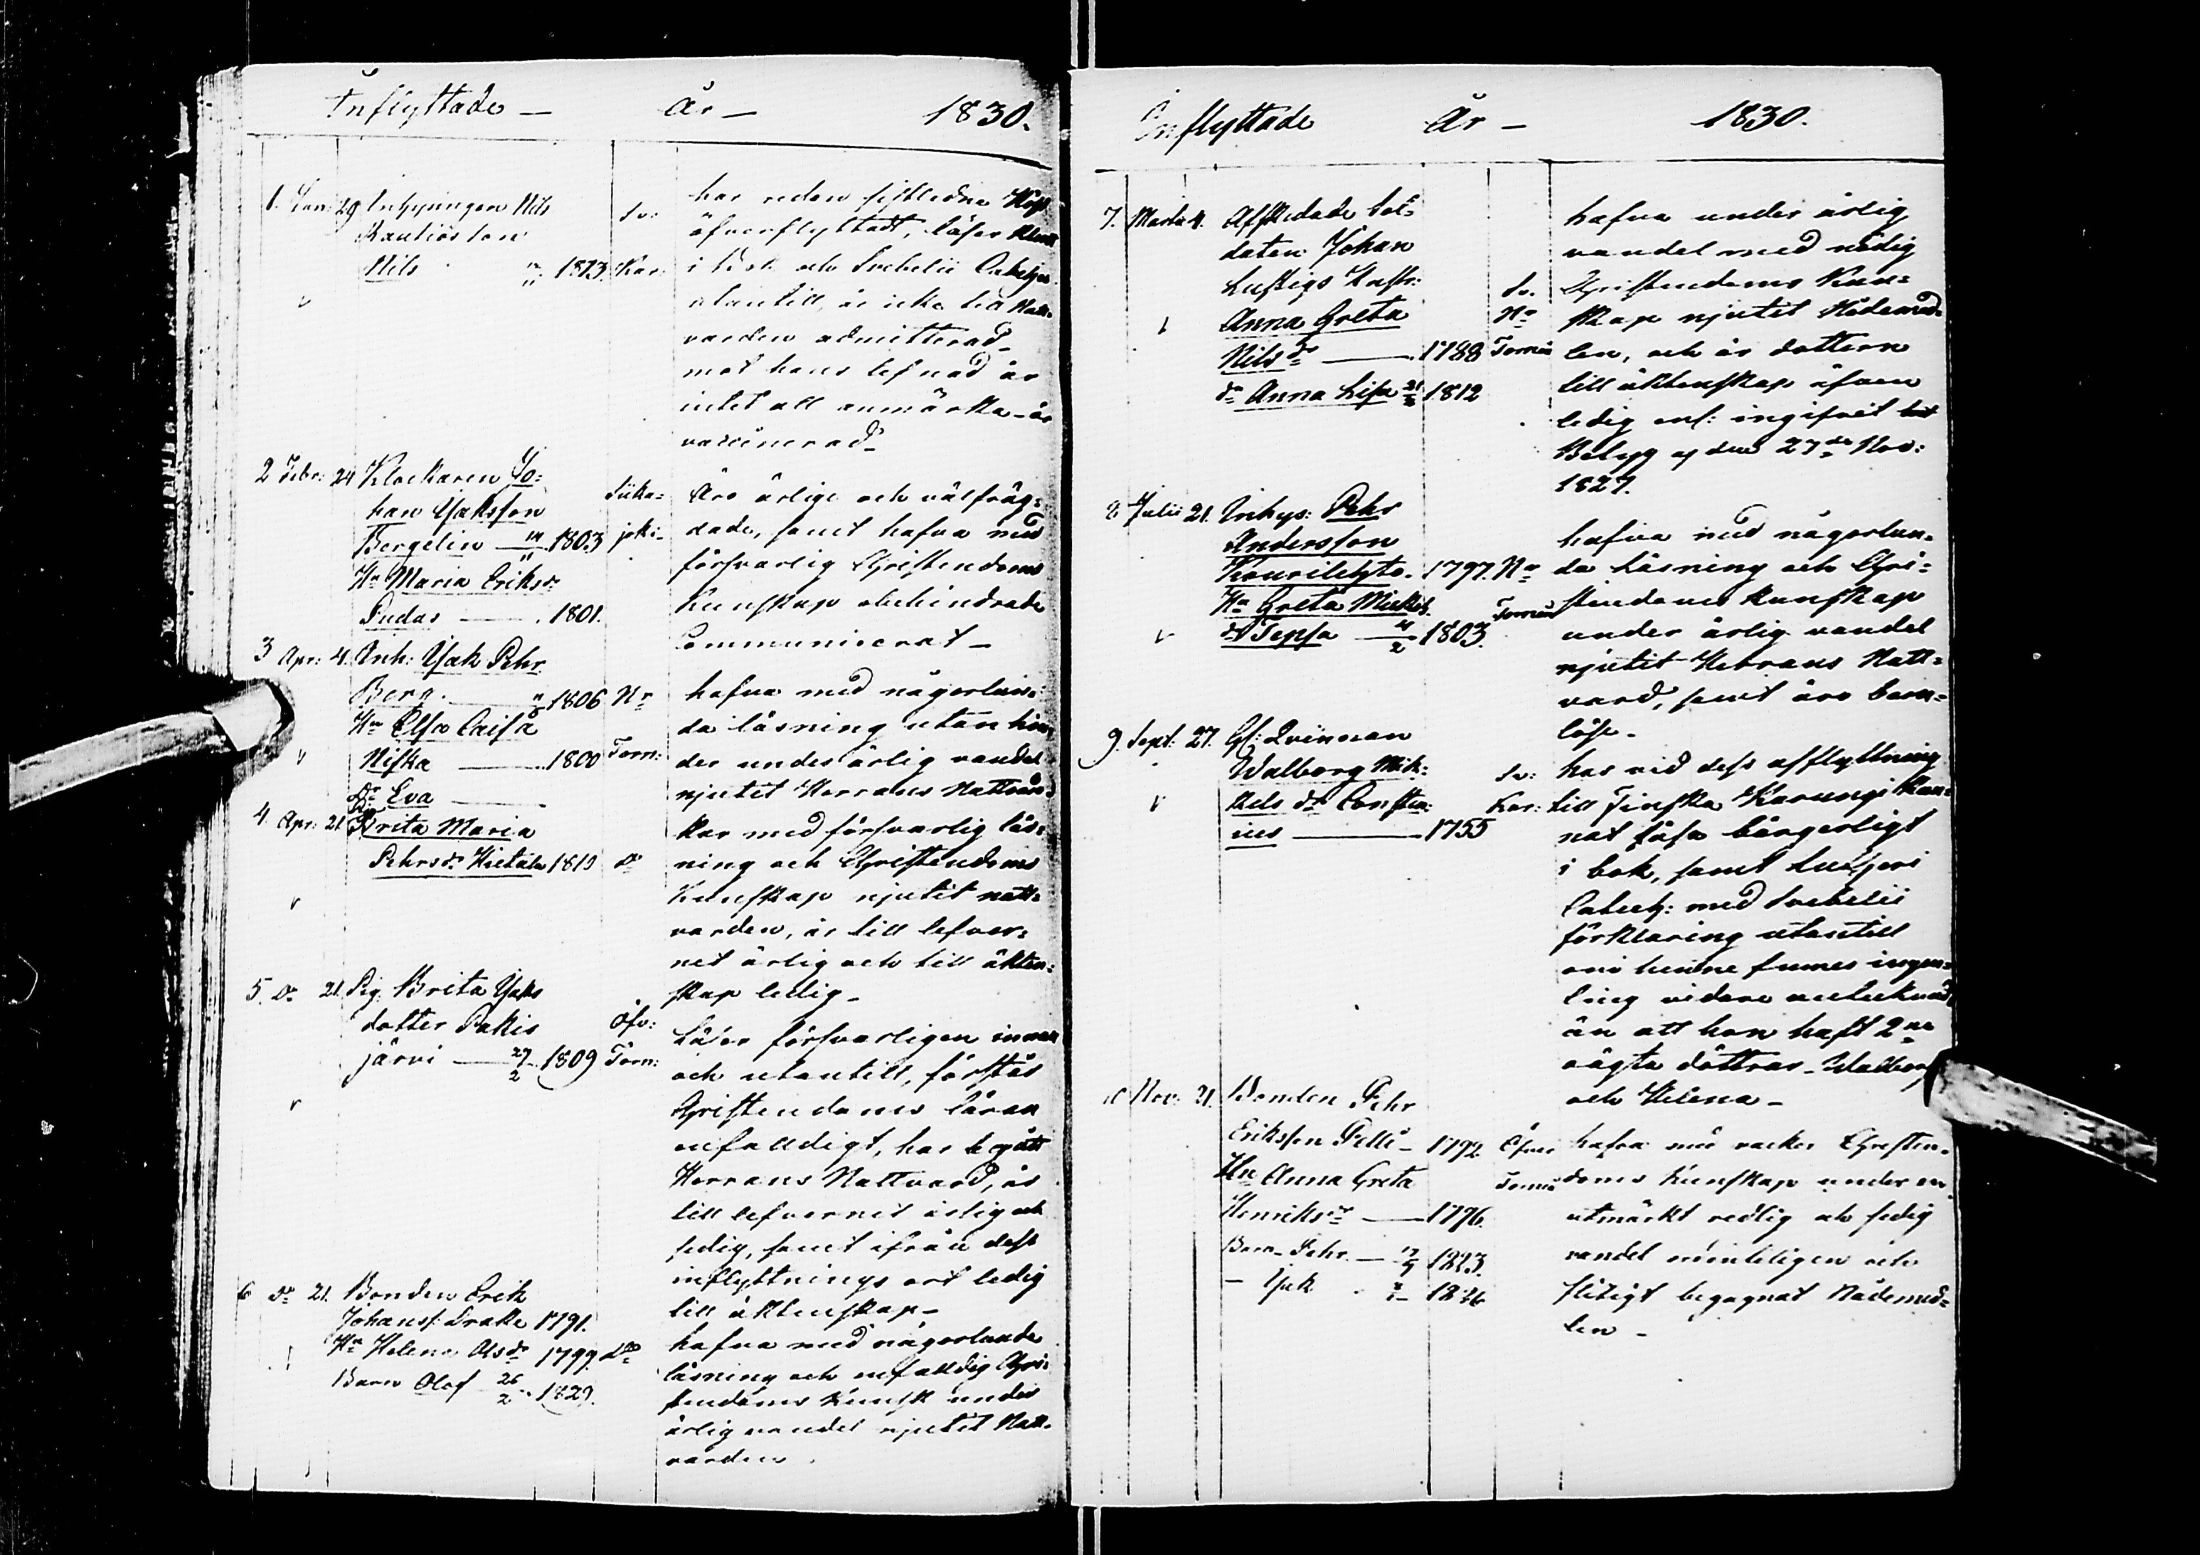 Inflyttade — År — 1830.
1. Jan: 29 Inhysingen Nils
Rautios son
Nils 1813. Sv: Kar:
har redan sistledne Höst
öfverflyttadt, läser
i Bok och Svebelii Cateches
utantill, är icke till Natt-
varden admitterad –
mot hans lefnad är
intet att anmärka – är
vaccinerad –
2 Febr: 24 Klockaren Jo-
han Jaksson
Bergelin — 1803
Hu Maria Eriksdr
Pudas — 1801.
Äro ärlige och välfräg-
dade, samt hafva med
försvarlig Christendoms
Kunskap obehindrade
Communicerat –
3 Apr: 4. Inh: Jak Pehr
Berg. — 1806 Nr
Hu Elsa Caisa
Niska — 1800 Torn:
Dr Eva —
hafva med någorlun-
da läsning utan hin-
der under ärlig vandel
njutit Herrans Nattvard
4 Apr: 21 Brita Maria
Pehrsdr Hietala 1810 Do
har med försvarlig läs-
ning och Christendoms
Kunskap njutit natt-
varden, är till lefver-
net ärlig och till äkten-
skap ledig –
5. Do 21 Pig. Brita Jaks
dotter Pakis
järvi — 27/2 1809 Öfv: Torn:
Läser försvarligen innan
och utantill, förstår
Christendoms läran
enfaldigt, har begått
Herrans Nattvard, är
till lefvernet ärlig och
sedig, samt ifrån dess
inflyttnings ort ledig
till äktenskap –
6 Do 21. Bonden Erik
Johanss: Drakke 1791.
Hu Helena Olsdr 1799. Do
Barn Olof 26/2 1829.
hafva med någorlunda
läsning och enfaldig Chri-
stendoms Kunsk under
ärlig vandel njutit Natt-
varden.
Inflyttade År — 1830.
7. Martii 4. Afskedade Sol-
daten Johan
Lustigs Hustr:
Anna Greta
Nilsdr — 1788 Sv. Nr Torneå
dr Anna Lisa 21/8 1812
hafva under ärlig
vandel med nödig
Christendoms Kun-
skap njutit Nådemed-
len, och är dottern
till äktenskap äfven
ledig enl: ingifvit
Betyg af den 27de Nov:
1827.
8 Julii 21. Inhys: Pehr
Andersson
Kourilehto. 1797. Nr
Hu Greta Mickels
dr Seppa — 1803. Torneå
hafva med någorlun-
da läsning och Chri-
stendoms kunskap
under ärlig vandel
njutit Herrans Natt-
vard, samt äro barn-
löse –
9. Sept: 27. Gl: Qvinnan
Walborg Mik-
kels dr Consten-
ius — 1755 Sv: Kar:
har vid dess afflyttning
till Finska Karungi Kun-
nat läsa börgerligt
i bok, samt Lutheri
Catech: med Svebelii
förklaring utantill
om henne finnes ingen-
ting vidare anteknad
än att hon haft 2ne
oägta döttrar – Walborg
och Helena –
10 Nov: 21. Bonden Pehr
Eriksson Pelli – 1792 Öfver
Hu Anna Greta Torneå
Henriksdr — 1796.
Barn – Pehr — 1823.
– Jak 1826
hafva med vacker Christen-
doms Kunskap under en
utmärkt redlig och sedig
vandel ordenteligen och
flitigt begagnat Nådemed-
len –